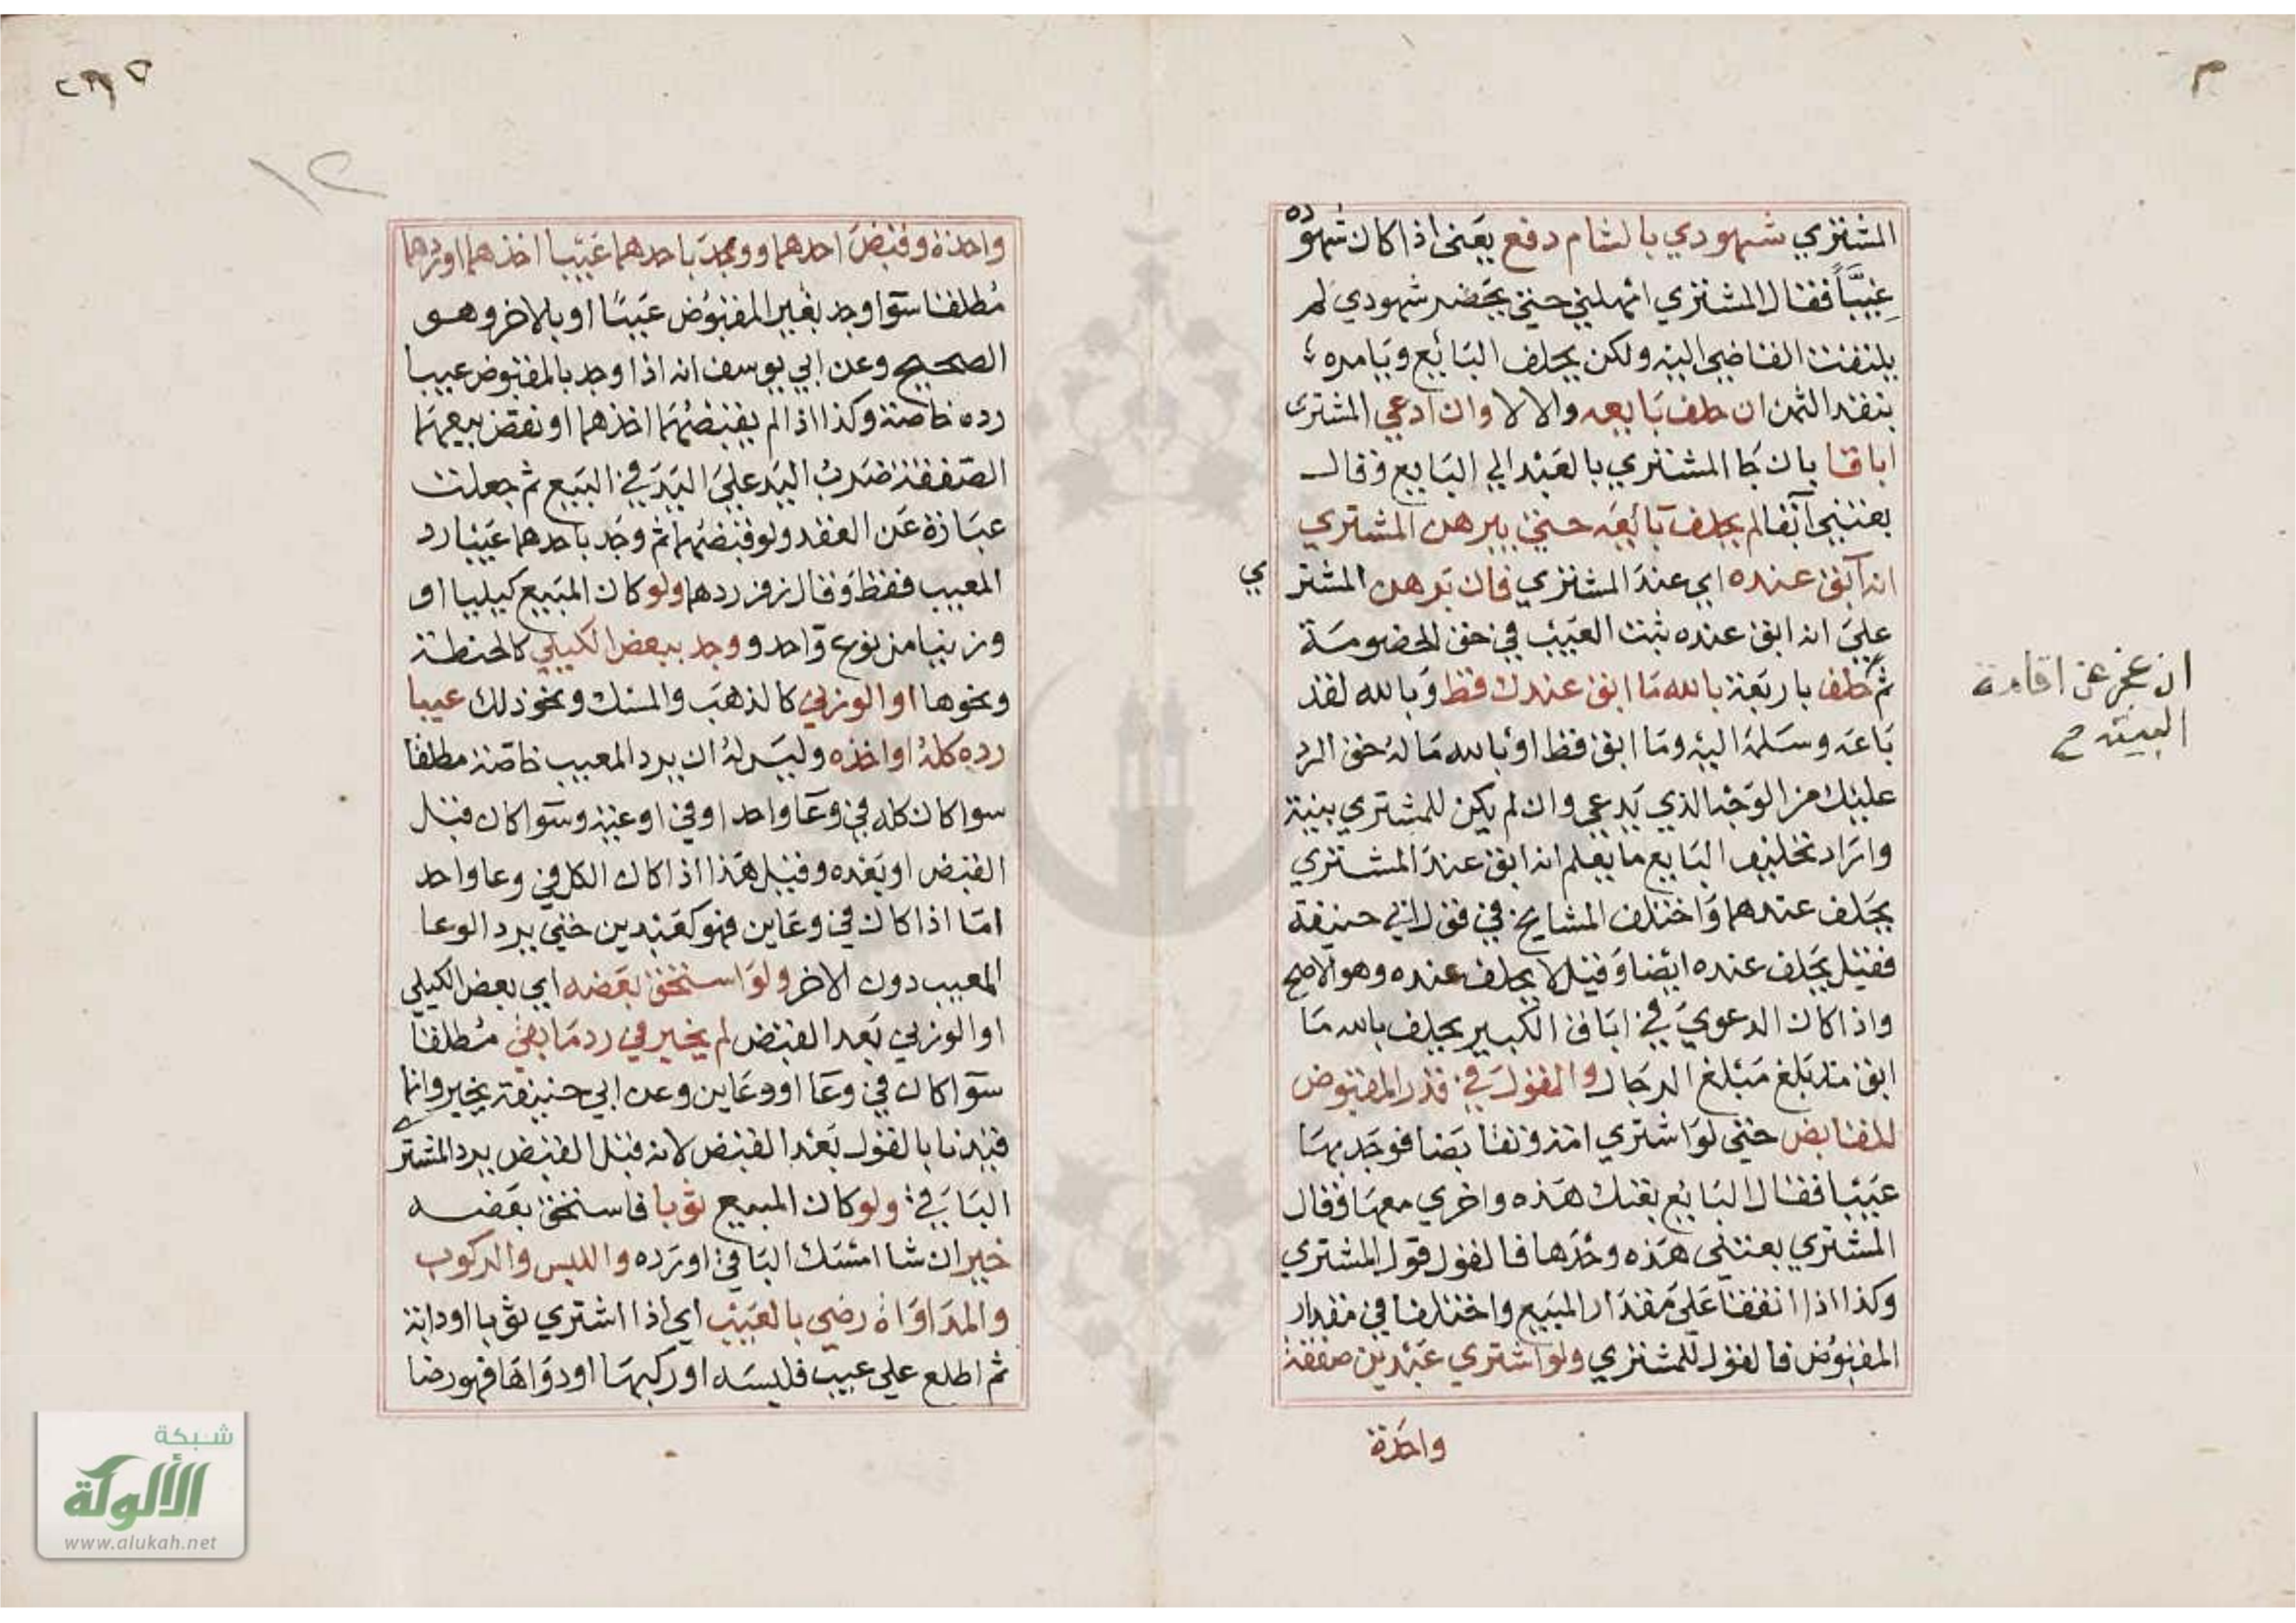 المشتري شهودي بالشام دفع يعني اذا كان شهوده
غيبًا فقال المشتري امهلني حتي يحضر شهودي لم
يلتفت القاضي اليه ولكن يحلف البائع ويامره
بنقد الثمن ان حلف بايعه والا لا وان ادعي المشترى
اباقا بان جا المشتري بالعبد الي البايع وقال
بعتني آبقا لم يحلف بائعه حتي يبرهن المشتري
انه آبق عنده اي عند المشتري فان برهن المشتري
علي انه ابق عنده ثبت العيب في حق الخصومة
ثم حلف باربعة بالله ما ابق عندك قط وبالله لقد
باعه وسلمه اليه وما ابق قط او بالله ما له حق الرد
عليك من الوجه الذي يدعي وان لم يكن للمشتري بينة
واراد تحليف البايع ما يعلم انه ابق عند المشتري
يحلف عندهما واختلف المشايخ في قول ابي حنيفة
فقيل يحلف عنده ايضا وقيل لا يحلف عنده وهو الاصح
واذا كان الدعوي في اباق الكبير يحلف بالله ما
ابق منذ بلغ مبلغ الرجال والقول في قدر المقبوض
للقابض حتي لو اشتري امة وتقابضا فوجد بها
عيبا فقال البايع بعتك هذه واخري معها وقال
المشتري بعتني هذه وحدها فالقول قول المشتري
وكذا اذا اتفقا علي مقدار المبيع واختلفا في مقدار
المقبوض فالقول للمشتري ولو اشتري عبدين صفقة
واحدة
ان عجز عن اقامة
البينة
واحدة وقبض احدهما ووجد باحدهما عيبا اخذهما او ردهما
مطلقا سوا وجد بغير المقبوض عيبًا او بالاخر وهو
الصحيح وعن ابي يوسف انه اذا وجد بالمقبوض عيبا
رده خاصة وكذا اذا لم يقبضهما اخذهما او نقض بيعهما
الصفقة ضرب اليد علي اليد في البيع ثم جعلت
عبارة عن العقد ولو قبضهما ثم وجد باحدهما عيبا رد
المعيب فقط وقال زفر ردهما ولو كان المبيع كيليا او
وزنيا من نوع واحد ووجد ببعض الكيلي كالحنطة
ونحوها او الوزني كالذهب والمسك ونحو ذلك عيبا
رده كله او اخذه وليس له ان يرد المعيب خاصة مطلقا
سوا كان كله في وعا واحد او في اوعية وسوا كان قبل
القبض او بعده وقيل هذا اذا كان الكل في وعا واحد
اما اذا كان في وعاين فهو كعبدين حتي يرد الوعا
المعيب دون الاخر ولو استحق بعضه اي بعض الكيلي
او الوزني بعد القبض لم يخير في رد ما بقي مطلقا
سوا كان في وعا او وعاين وعن ابي حنيفة يخير وانما
قيدنا بالقول بعد القبض لانه قبل القبض يرد المشتر
الباقي ولو كان المبيع ثوبا فاستحق بعضه
خير ان شا امسك الباقي او رده واللبس والركوب
والمداواة رضي بالعيب اي اذا اشتري ثوبا او دابة
ثم اطلع علي عيب فلبسه او ركبها او دواها فهو رضا
١٢
شبكة
الألوكة
www.alukah.net